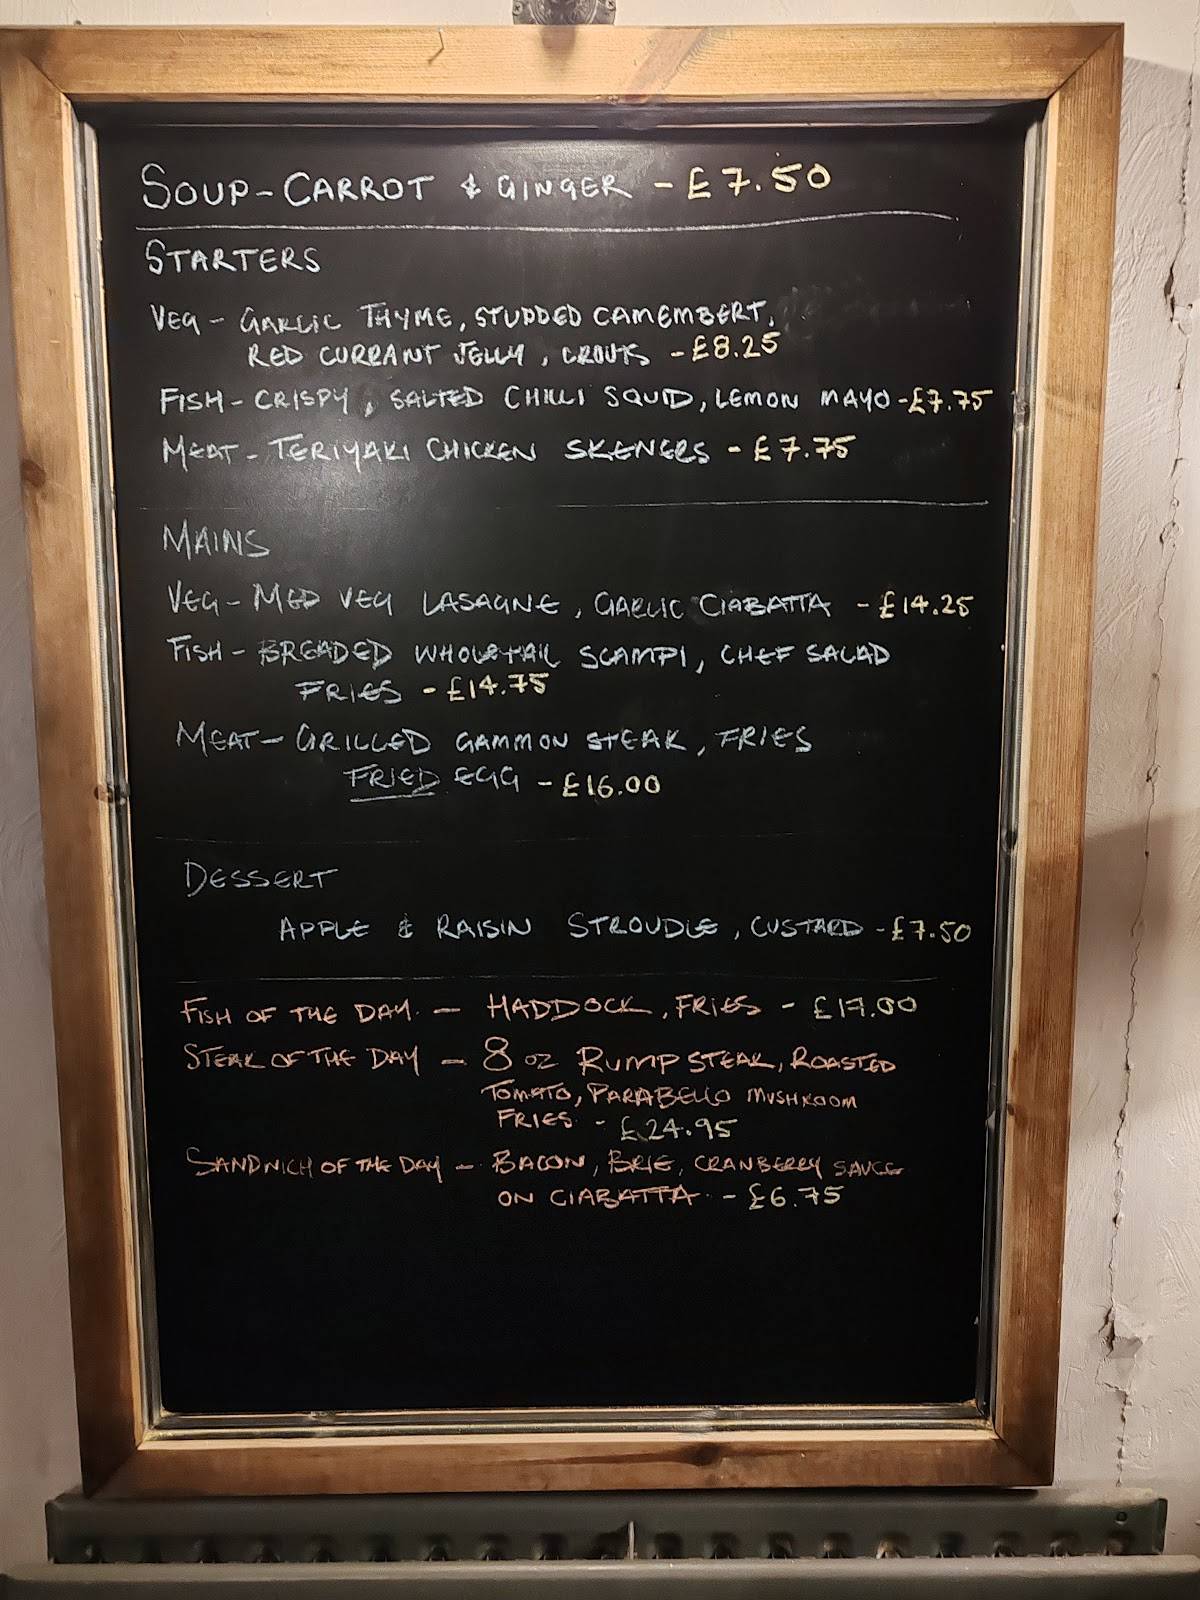 SOUP - CARROT & GINGER - £7.50
STARTERS
VEG - GARLIC THYME, STUDDED CAMEMBERT,
RED CURRANT JELLY, CROUTS - £8.25
FISH - CRISPY, SALTED CHILLI SQUID, LEMON MAYO - £7.75
MEAT - TERIYAKI CHICKEN SKEWERS - £7.75
MAINS
VEG - MED VEG LASAGNE, GARLIC CIABATTA - £14.25
FISH - BREADED WHOLETAIL SCAMPI, CHEF SALAD
FRIES - £14.75
MEAT - GRILLED GAMMON STEAK, FRIES
FRIED EGG - £16.00
DESSERT
APPLE & RAISIN STROUDLE, CUSTARD - £7.50
FISH OF THE DAY - HADDOCK, FRIES - £17.00
STEAK OF THE DAY - 8 OZ RUMP STEAK, ROASTED
TOMATO, PARABELLO MUSHROOM
FRIES - £24.95
SANDWICH OF THE DAY - BACON, BRIE, CRANBERRY SAUCE
ON CIABATTA - £6.75